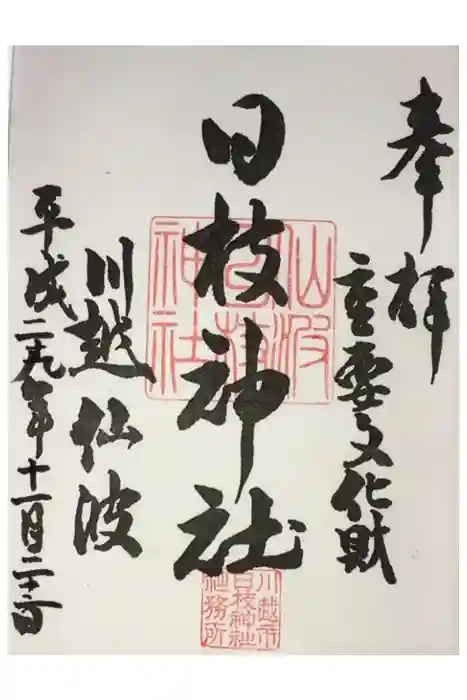 奉拝
重要文化財
日枝神社
仙波
日枝
神社
川越市
日枝神社
社務所
川越仙波
平成二十九年十一月二十二日